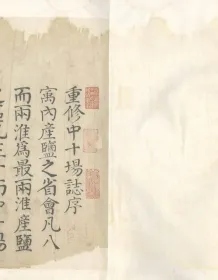 重修中十場誌序
寓內產鹽之省會凡八
而兩淮爲最兩淮產鹽
三十而中十場